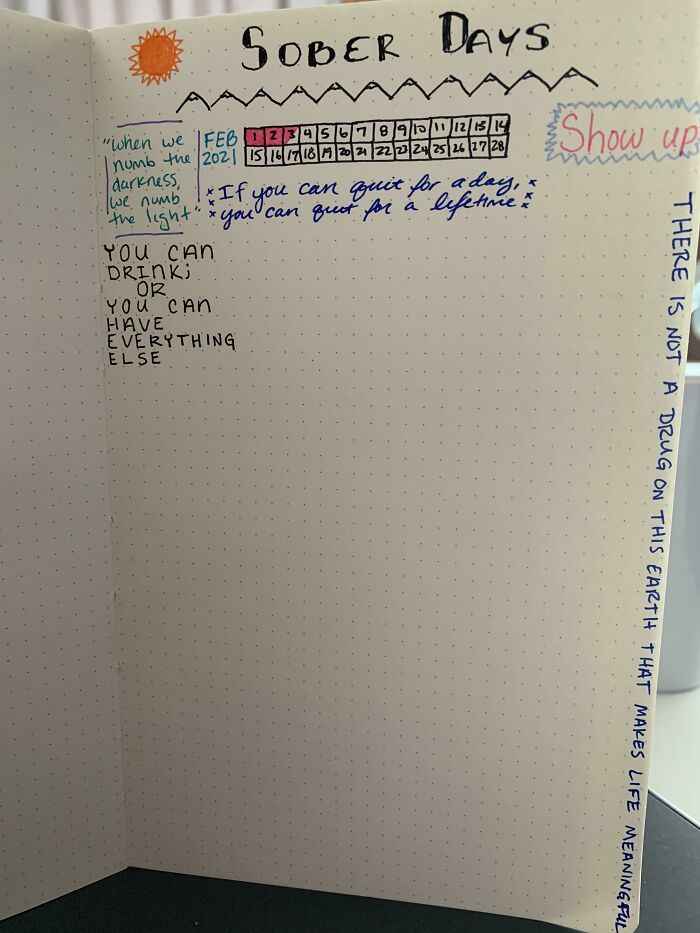 SOBER DAYS
"when we
numb the
darkness,
we numb
the light"
FEB
2021
1 2 3 4 5 6 7 8 9 10 11 12 13 14
15 16 17 18 19 20 21 22 23 24 25 26 27 28
If you can quit for a day,
you can quit for a lifetime
Show up
YOU CAN
DRINK;
OR
YOU CAN
HAVE
EVERYTHING
ELSE
THERE IS NOT A DRUG ON THIS EARTH THAT MAKES LIFE MEANINGFUL